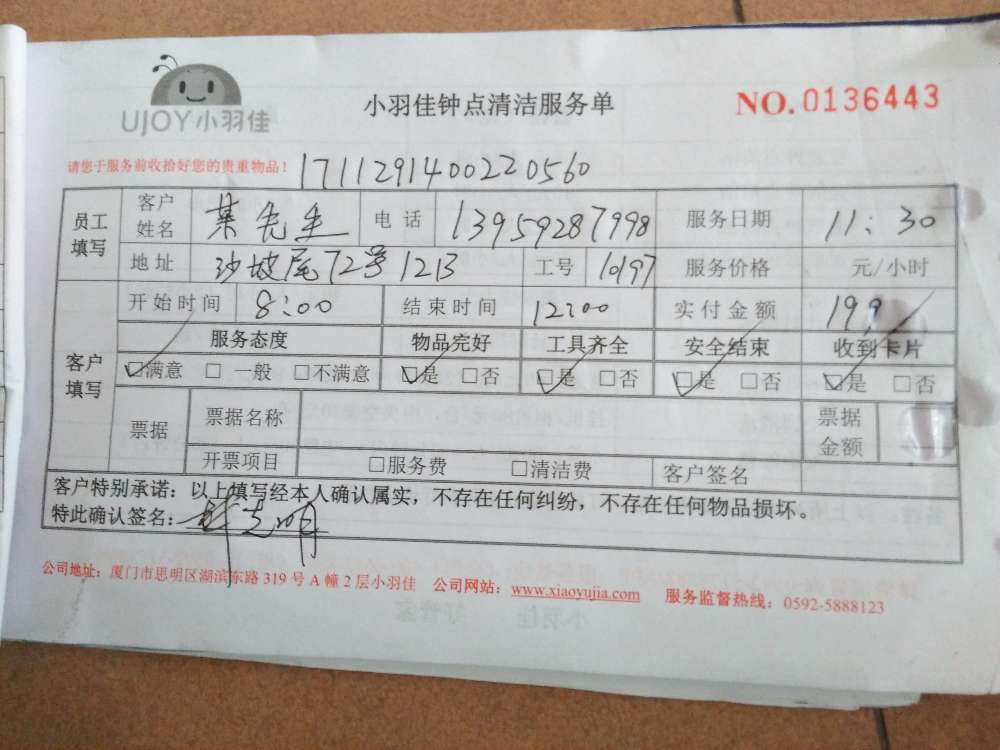 UJOY小羽佳
小羽佳钟点清洁服务单
NO.0136443
请您于服务前收拾好您的贵重物品！
1711291400220560
员工填写 客户姓名 先生 电话 13959287998 服务日期 11:30
地址 沙坡尾72号1213 工号 10197 服务价格 元/小时
客户填写 开始时间 8:00 结束时间 12:00 实付金额 199
服务态度 物品完好 工具齐全 安全结束 收到卡片
☑满意 □一般 □不满意 ☑是 □否 ☑是 □否 ☑是 □否 ☑是 □否
票据 票据名称 票据金额
开票项目 □服务费 □清洁费 客户签名
客户特别承诺：以上填写经本人确认属实，不存在任何纠纷，不存在任何物品损坏。
特此确认签名：
公司地址：厦门市思明区湖滨东路319号A幢2层小羽佳 公司网站：www.xiaoyujia.com 服务监督热线：0592-5888123